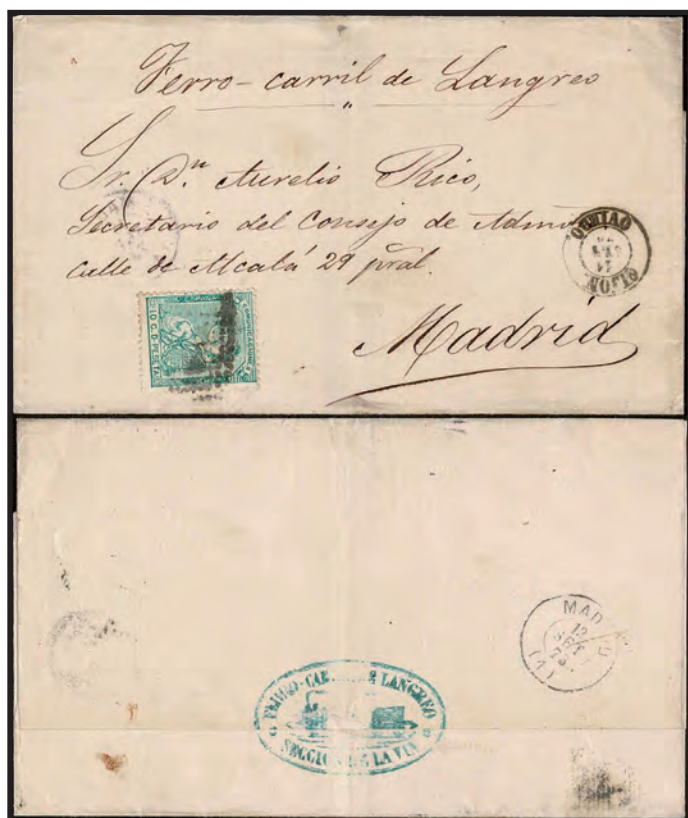 Ferro-carril de Langreo
Sr. Dn. Aurelio Rico,
Secretario del Consejo de Admon
calle de Alcalá 29 pral.
Madrid
OVIEDO.
GIJON.
COMUNICACIONES
10 C. D. PESETA
MAD
(1)
FERRO-CARRIL DE LANGREO
SECCION DE LA VIA